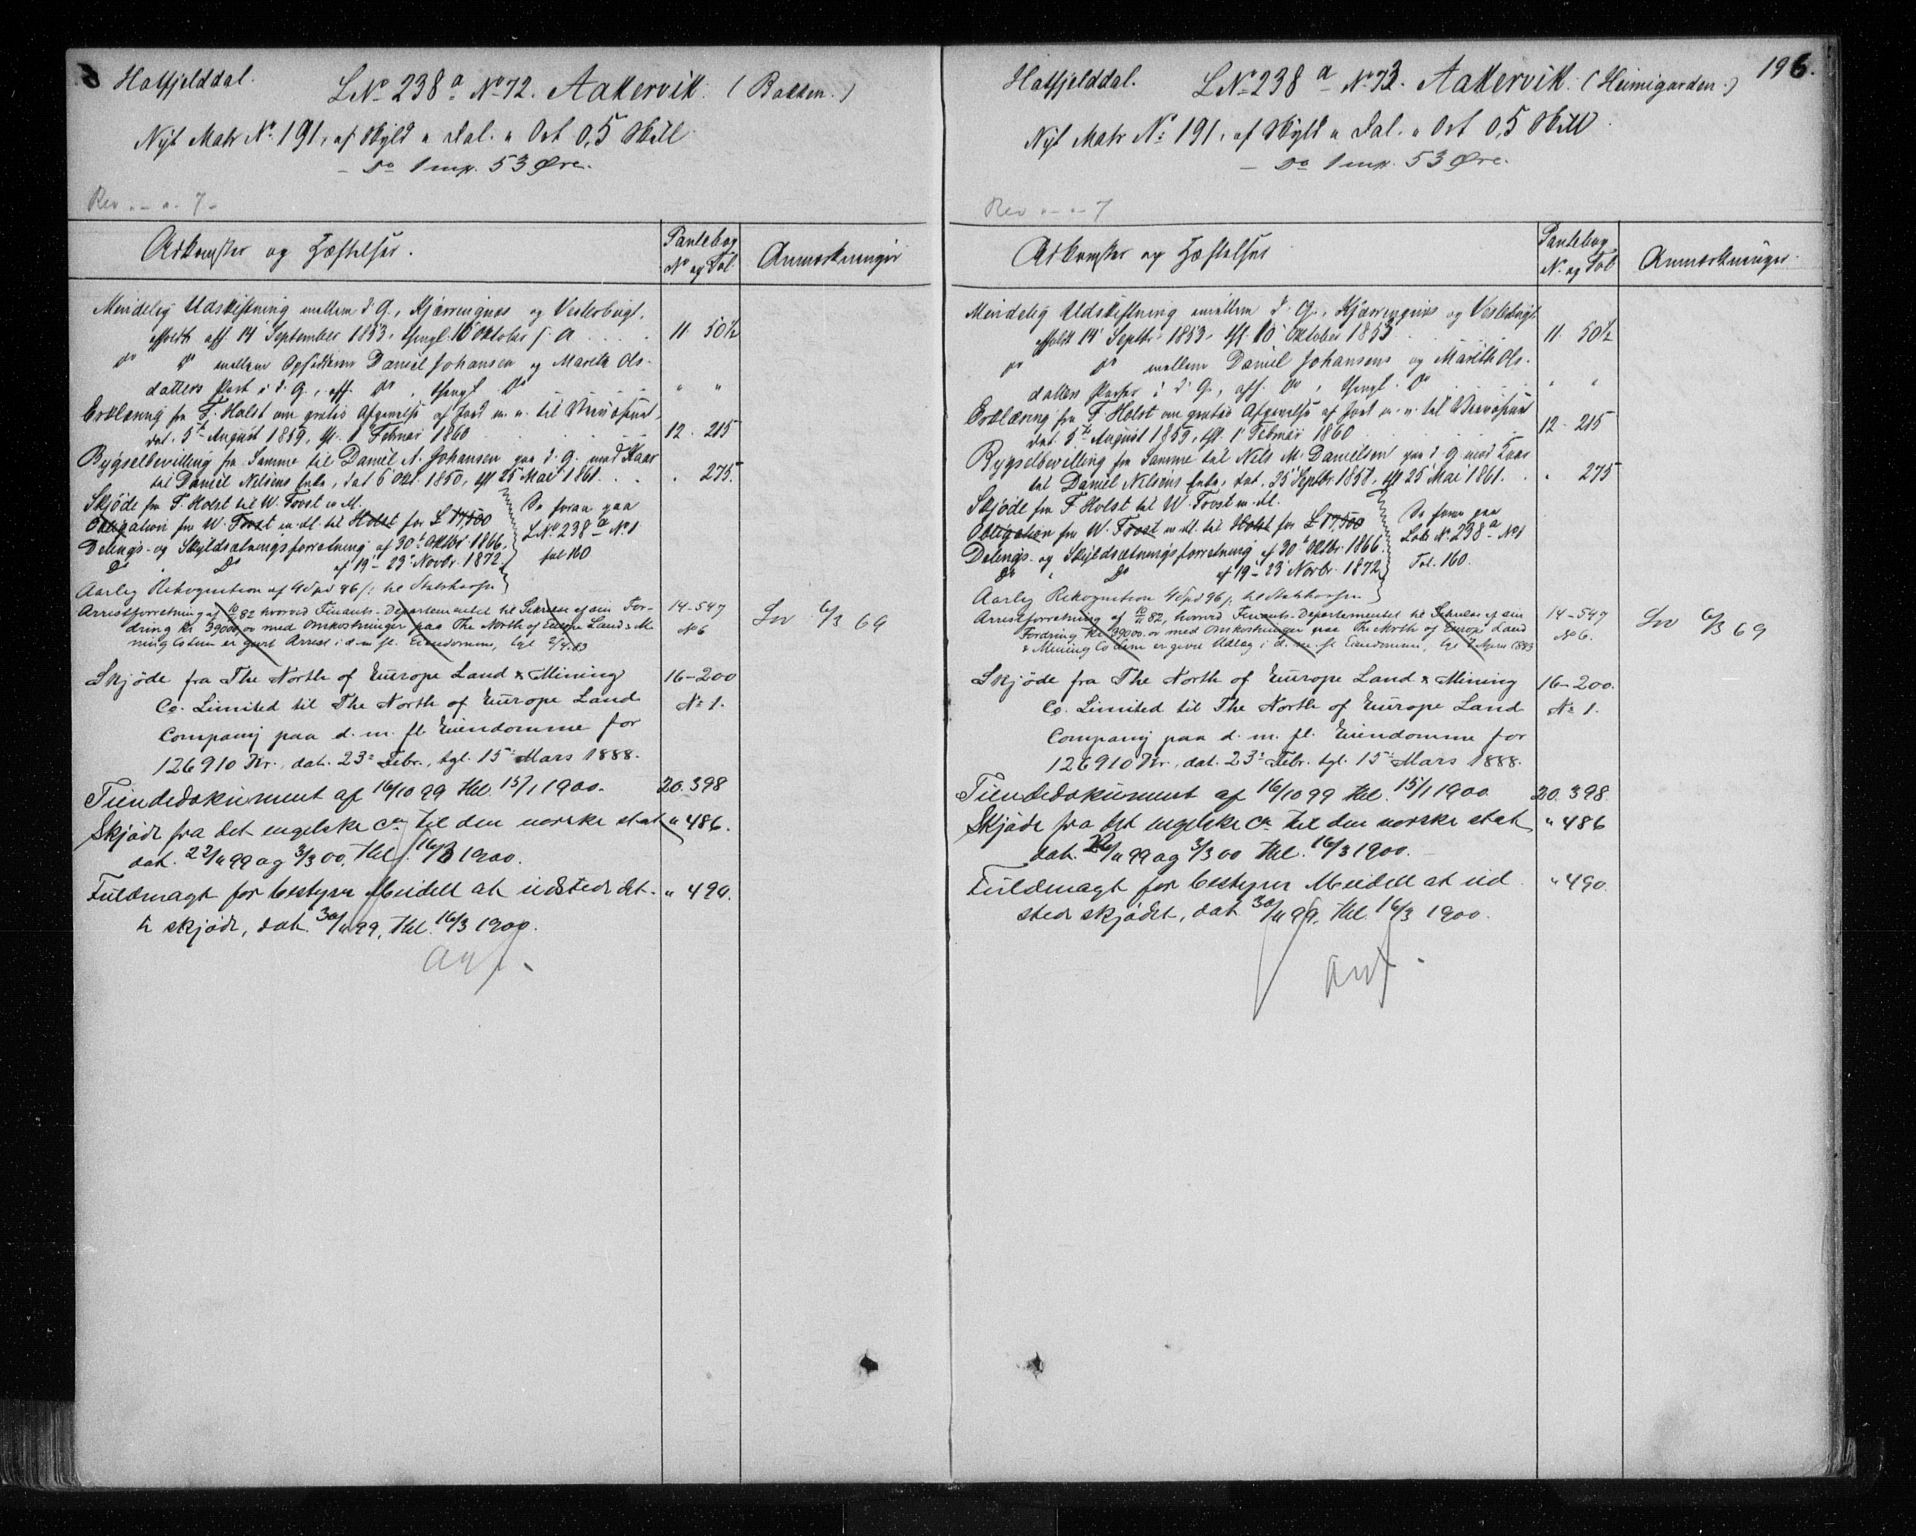 Hatfjelddal.
LNo 238a No 72. Aakervik. (Bakken.)
Nyt Matr No 191, af Skyld " Dal. " Ort 0,5 Skill
- Do 1 mp. 53 Øre.
Rev. - " - 7 -
Adkomster og Hæftelser.
Pantebog
No og Fol
Anmærkninger
Mindelig Udskiftning mellem d. G., Kjærringnes og Vesterbugt,
afholdt 14 September 1853, thingl. 15 Oktober s. A. 11. 50½
do do mellem Opsidderne Daniel Johansen og Marith Ols-
datters Part i d. G., aff. do, thingl. do " "
Erklæring fra F. Holst om gratis Afgivelse af Jord m. v. til
dat. 5te August 1859, thl. 1 Februar 1860 12. 215
Bygselbevilling fra Samme til Daniel A. Johansen paa d. G. mod Kaar
til Daniel Nilsens Enke, dat 6 Okt. 1850, thl 25 Mai 1861. " 275.
Skjøde fra F. Holst til W. Foost m. fl.
Obligation fra W. Foost m. fl. til Holst for £ 17,500
Delings- og Skyldsætningsforretning af 30te Oktbr 1866.
Do Do af 19-23 Novbr. 1872
Se foran paa
LNo 238a No 1
fol 160
Aarlig Rekognition af 4 Spd 96 s. til Statskassen
Arrestforretning af 10/11 82 hvorved Finants-Departementet til Sikkelse af sin For-
dring Kr 39000,00 med Omkostninger paa The North of Europe Land & Mi-
ning Co Lim er gjort Arrest i d. m. fl. Eiendomme, tgl 2/4 83
14-547
No 6
Lov 6/3 69
Skjøde fra The North of Europe Land & Mining 16-200
Co. Limited til The North of Europe Land No 1.
Company paa d. m. fl. Eiendomme for
126910 Kr., dat. 23de Febr., tgl. 15de Mars 1888.
Tiendedokument af 16/10 99 thl. 15/1 1900. 20. 398
Skjøde fra det engelske Co til den norske stat " 486.
dat. 22/11 99 og 3/3 00, thl. 16/3 1900.
Fuldmagt for bestyrer Meidell at udstede det- " 490.
te skjøde, dat. 30/11 99, thl. 16/3 1900.
196.
Hatfjelddal.
LNo 238a No 73. Aakervik. (Heimigarden.)
Nyt Matr No 191, af Skyld " Dal. " Ort 0,5 Skill
- Do 1 mp. 53 Øre.
Rev " - " - 7
Adkomster og Hæftelser
Pantebog
No og Fol
Anmærkninger.
Mindelig Udskiftning mellem d. G., Kjærringnes og Vesterbugt
afholdt 14 Septbr 1853, thl. 15 Oktober 1853 11. 50½
do do mellem Daniel Johansens og Marith Ols-
datters Parter i d. G., aff. do, thingl. do " "
Erklæring fra F. Holst om gratis Afgivelse af Jord m. v. til
dat. 5te August 1859, thl. 1 Februar 1860 12. 215
Bygselbevilling fra Samme til Nils M. Danielsen paa d. G. mod Kaar
til Daniel Nilsens Enke, dat. 25 Septbr 1858, thl 25 Mai 1861. " 275
Skjøde fra F. Holst til W. Foost m. fl.
Obligation fra W. Foost m. fl. til Holst for £ 17,500
Delings- og Skyldsætningsforretning af 30te Oktbr 1866.
Do Do af 19-23 Novbr. 1872
Se foran paa
Løbe No 238a No 1
Fol. 160.
Aarlig Rekognition 4 Spd 96 s. til Statskassen
Arrestforretning af 10/11 82, hvorved Finants-Departementet til Sikkelse af sin
Fordring Kr. 39000.00 med Omkostninger paa The North of Europe Land
& Mining Co Lim er givet Udlæg i d. m. fl Eiendomme, tgl 2 April 1883
14-547
No 6.
Lov 6/3 69
Skjøde fra The North of Europe Land & Mining 16-200.
Co. Limited til The North of Europe Land No 1.
Company paa d. m. fl. Eiendomme for
126910 Kr., dat. 23de Febr. tgl. 15de Mars 1888.
Tiendedokument af 16/10 99 thl. 15/1 1900 20. 398.
Skjøde fra det engelske Co til den norske stat " 486
dat. 22/11 99 og 3/3 00 thl. 16/3 1900. -
Fuldmagt for bestyrer Meidell at ud " 490.
stede skjødet, dat 30/11 99, thl 16/3 1900.